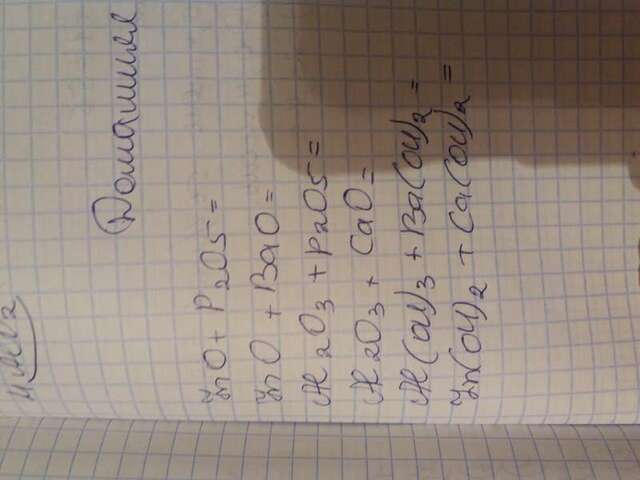 Домашняя
ZnO + P2O5 =
ZnO + BaO =
Al2O3 + P2O5 =
Al2O3 + CaO =
Al(OH)3 + Ba(OH)2 =
Zn(OH)2 + Ca(OH)2 =